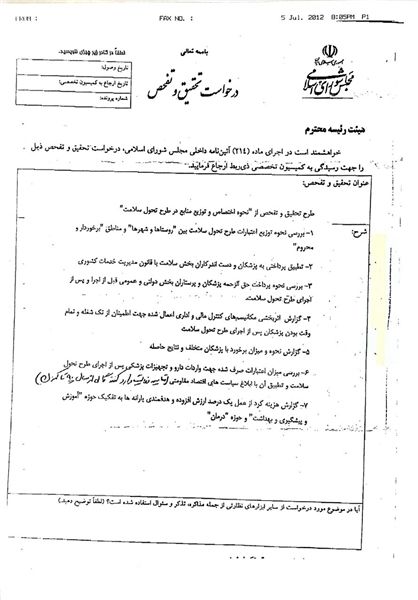 FAX NO. :
5 Jul. 2012 8:05PM P1
باسمه تعالی
درخواست تحقیق و تفحص
مجلس شورای اسلامی
لطفاً در کادر زیر چیزی ننویسید.
تاریخ وصول:
تاریخ ارجاع به کمیسیون تخصصی:
شماره پرونده:
هیئت رئیسه محترم
خواهشمند است در اجرای ماده (۲۱۴) آئین‌نامه داخلی مجلس شورای اسلامی، درخواست تحقیق و تفحص ذیل
را جهت رسیدگی به کمیسیون تخصصی ذی‌ربط ارجاع فرمایید.
عنوان تحقیق و تفحص:
طرح تحقیق و تفحص از "نحوه اختصاص و توزیع منابع در طرح تحول سلامت"
شرح:
۱- بررسی نحوه توزیع اعتبارات طرح تحول سلامت بین "روستاها و شهرها" و مناطق "برخوردار و
محروم"
۲- تطبیق پرداختی به پزشکان و دست اندرکاران بخش سلامت با قانون مدیریت خدمات کشوری
۳- بررسی نحوه پرداخت حق الزحمه پزشکان و پرستاران بخش دولتی و عمومی قبل از اجرا و پس از
اجرای طرح تحول سلامت.
۴- گزارش اثربخشی مکانیسم‌های کنترل مالی و اداری اعمال شده جهت اطمینان از تک شغله و تمام
وقت بودن پزشکان پس از اجرای طرح تحول سلامت
۵- گزارش نحوه و میزان برخورد با پزشکان متخلف و نتایج حاصله
۶- بررسی میزان اعتبارات صرف شده جهت واردات دارو و تجهیزات پزشکی پس از اجرای طرح تحول
سلامت و تطبیق آن با ابلاغ سیاست های اقتصاد مقاومتی
۷- گزارش هزینه کرد از محل یک درصد ارزش افزوده و هدفمندی یارانه ها به تفکیک حوزه "آموزش
و پیشگیری و بهداشت" و حوزه "درمان"
آیا در موضوع مورد درخواست از سایر ابزارهای نظارتی از جمله مذاکره، تذکر و سئوال استفاده شده است؟ (لطفاً توضیح دهید.)